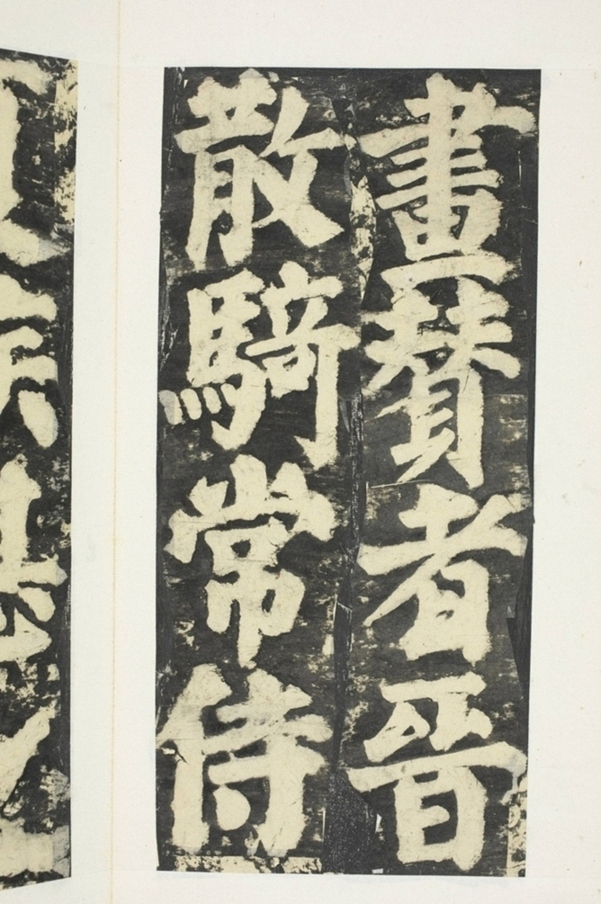 畫賛者晉
散騎常侍